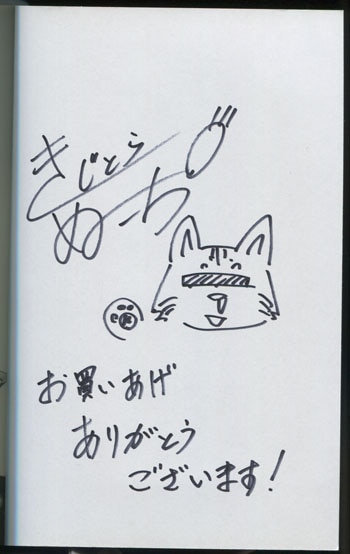 きじとら
ぬーち
お買いあげ
ありがとう
ございます!